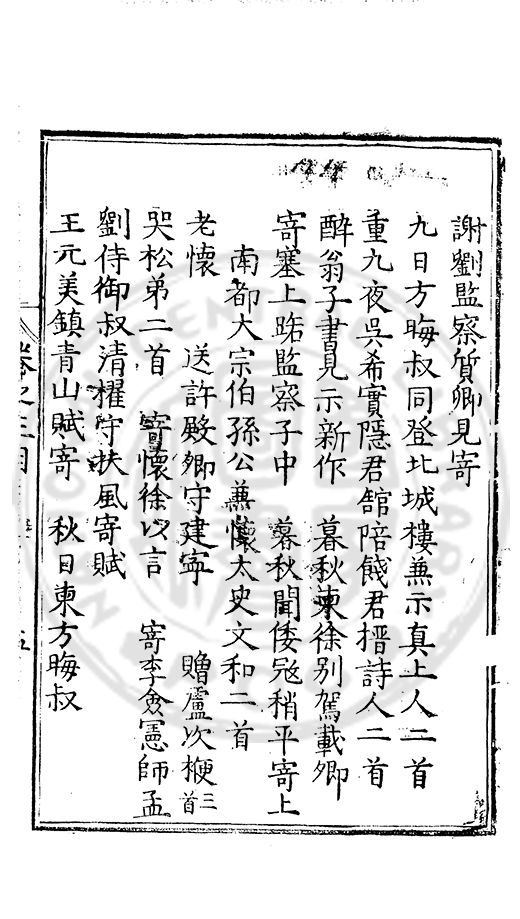 謝劉監察質卿見寄
九日方晦叔同登北城樓蕪示真上人二首
重九夜吳希實隱君舘陪餞君搢詩人二首
醉翁子書見示新作　暮秋柬徐別駕載卿
寄塞上踞監察子中　暮秋聞倭冦稍平寄上
南都大宗伯孫公蕪懷太史文和二首
老懷　送許殿卿守建寧　贈盧次楩三首
哭松弟二首　寄懷徐以言　寄李僉憲師孟
劉侍御叔清擢守扶風寄賦
王元美鎮青山賦寄　秋日柬方晦叔
卷之三目
五